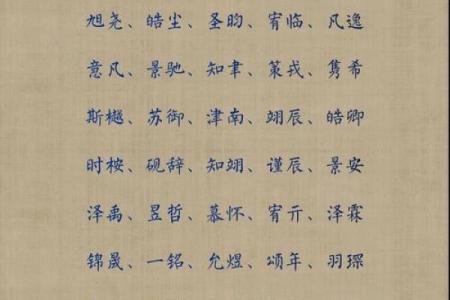 旭尧、皓尘、圣昀、宥临、凡逸
意凡、景驰、知聿、策戎、隽希
斯樾、苏御、津南、翊辰、皓卿
时桉、砚辞、知翊、谨辰、景安
泽禹、昱哲、慕怀、宥亓、泽霖
锦晟、一铭、允煜、颂年、羽琛